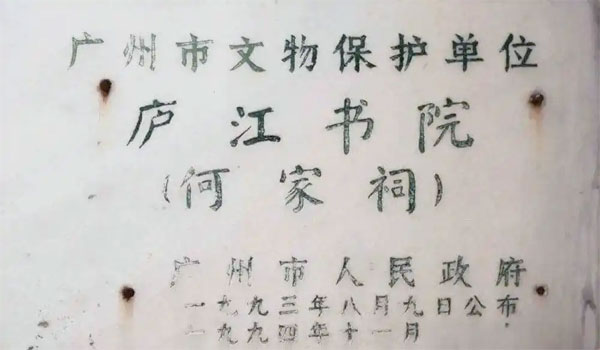 广州市文物保护单位
庐江书院
(何家祠)
广州市人民政府
一九九三年八月九日公布
一九九四年十一月